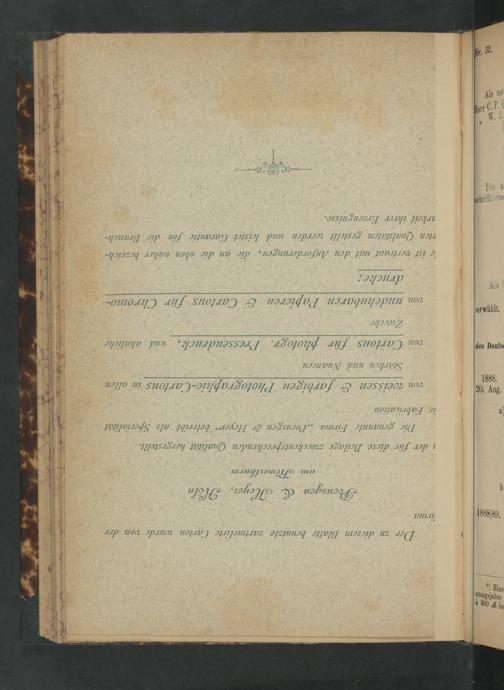 Der zu diesem Blatte benutzte zartmelirte Carton wurde von der
irma
Poensgen & Heyer, Köln
am Römerthurm
n der für diese Beilage zweckentsprechenden Qualität hergestellt.
Die genannte Firma „Poensgen & Heyer“ betreibt als Specialität
ie Fabrication
von weissen & farbigen Photographie-Cartons in allen
Stärken und Nuancen
von Cartons für photogr. Pressendruck, und ähnliche
Zwecke
von undehnbaren Papieren & Cartons für Chromo-
drucke;
ie ist vertraut mit den Anforderungen, die an die oben näher bezeich-
eten Qualitäten gestellt werden und leistet Garantie für die Brauch-
arkeit ihrer Erzeugnisse.
Nr. 32.
Als ne
Herr C. P. G
„ W. L
Die u
schriftliche
Als
erwählt.
des Deuts
1888.
20. Aug.
a)
b
1888/89.
*) Eine
nungsjahre
à 300 M be